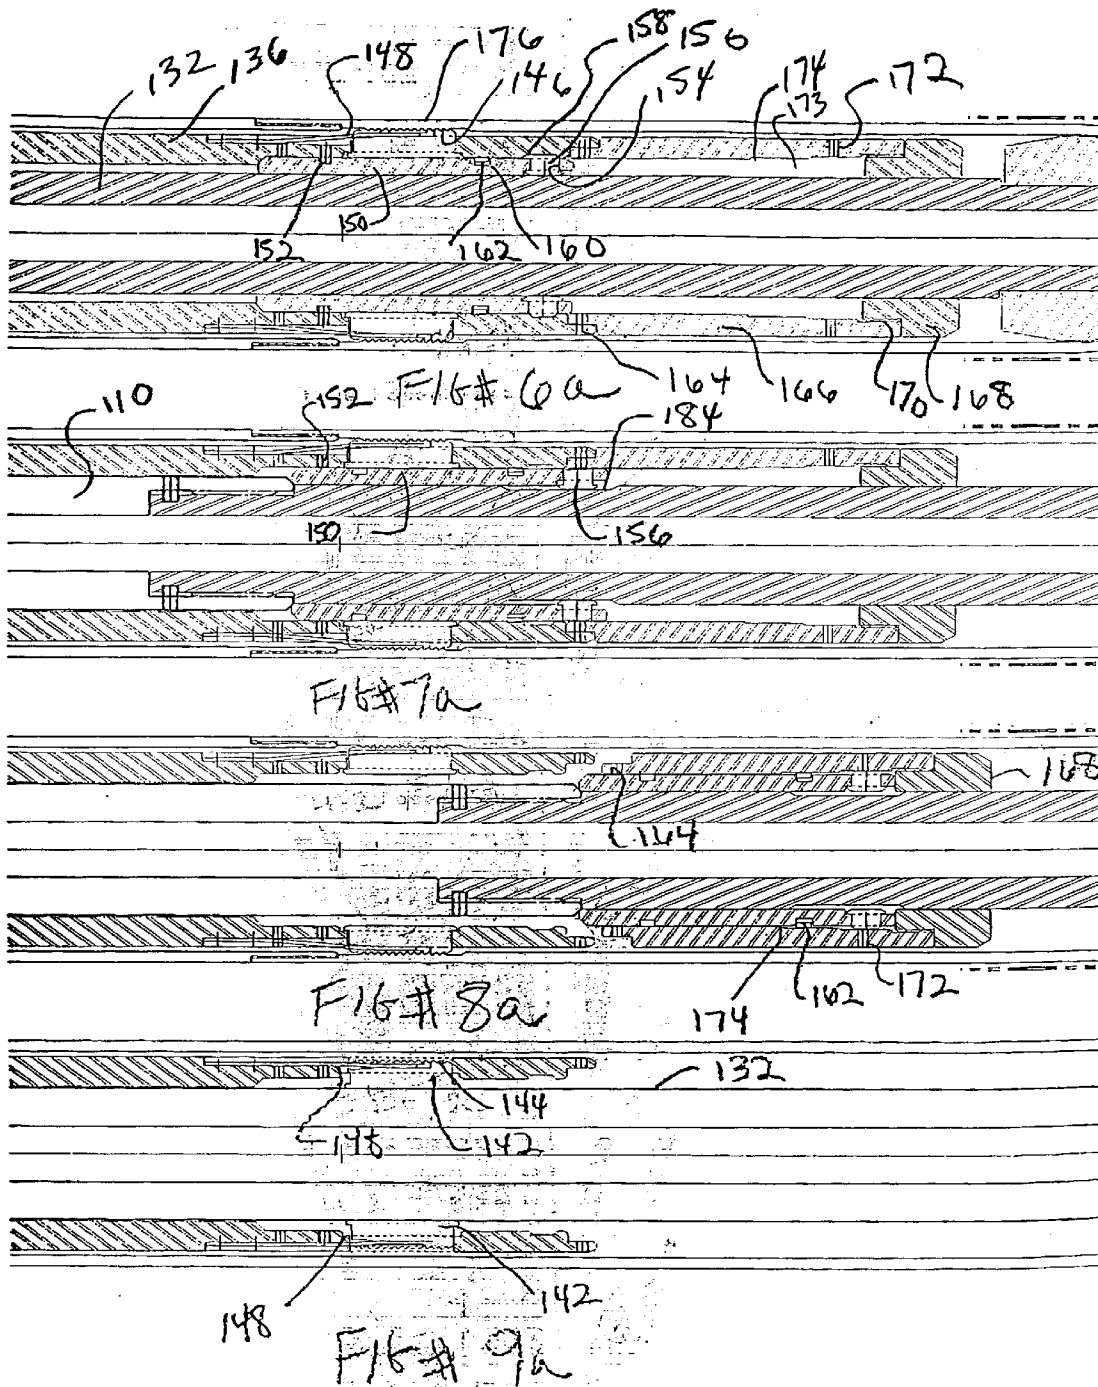 132 136 148 176 146 158 156 154 174 173 172
152 150 162 160
164 166 170 168
FIG# 6a
110 152 184
150 156
FIG# 7a
168
164
174 162 172
FIG# 8a
132
148 144 142
148 142
FIG# 9a